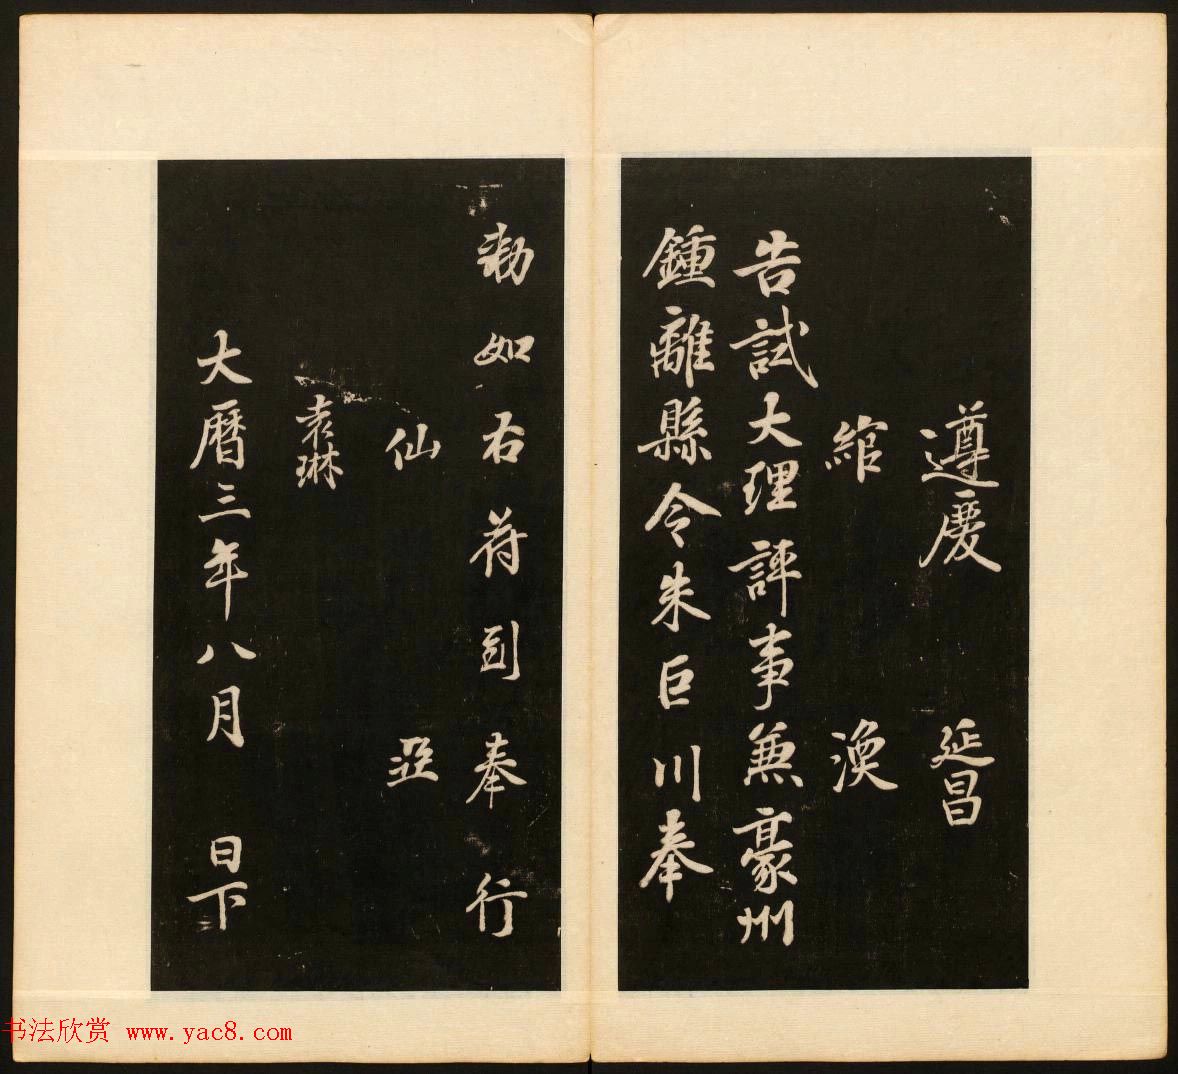 遵慶 延昌
綰 渙
告試大理評事兼豪州
鍾離縣令朱巨川奉
勑如右符到奉行
仙 亞
袁琳
大曆三年八月 日下
书法欣赏 www.yac8.com